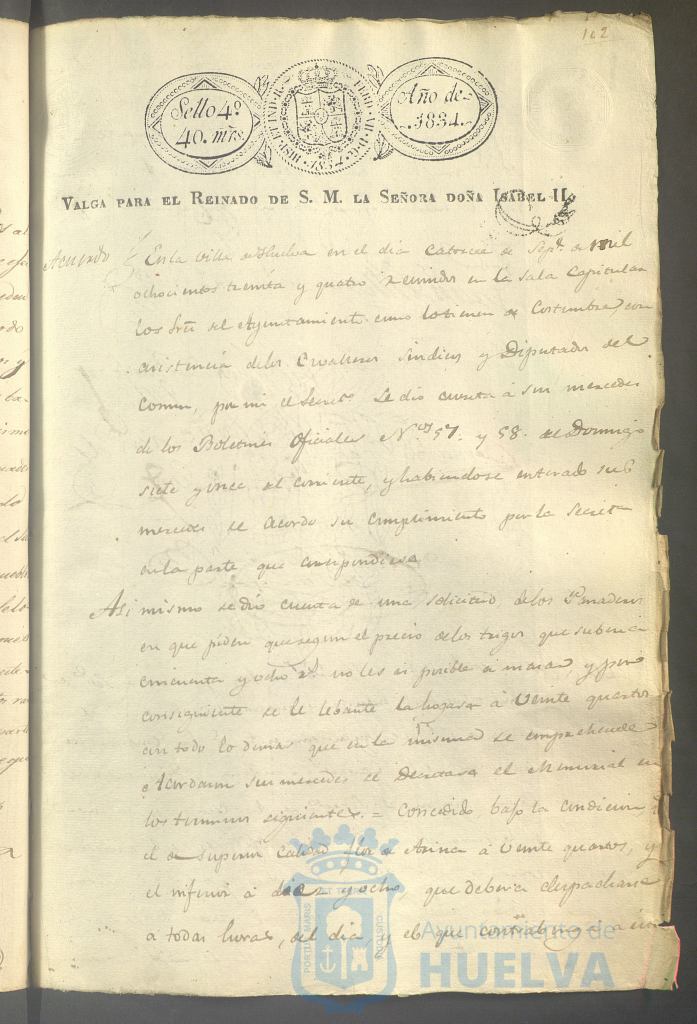 102
Sello 4º
40. mrs.
HISP. ET IND. R. FERD. VII. D. G. 1834.
Año de
1834.
VALGA PARA EL REINADO DE S. M. LA SEÑORA DOÑA ISABEL II.
Acuerdo
En la villa de Huelva en el dia Catorce de Sepe. de mil
ochocientos treinta y quatro reunidos en la sala Capitular
los Sres del Ayuntamiento como lo tienen de Costumbre, con
asistencia de los Cavalleros Sindicos y Diputados del
Comun, por mi el Secreto. se dio cuenta á sus mercedes
de los Boletines Oficiales Nos. 57. y 58. de Domingo
siete y once del corriente, y habiendose enterado sus
mercedes se acordo su cumplimiento por la Secreta
en la parte que corresponda
Asi mismo se dio cuenta de una solicitud de los Panaderos
en que piden que segun el precio de los trigos que suben a
cincuenta y ocho rs. no les es posible amasar, y por
consiguiente se le lebante la hogasa á veinte quartos
con todo lo demas que en la misma se emprehende
Acordaron sus mercedes se Decretase el Memorial en
los terminos siguientes. = Concedido, bajo la condicion,
el de superior calidad flor de Arina á veinte quartos, y
el inferior á diez y ocho, que deberá despacharse
a todas horas, del dia, y el que
PORTUS MARIS ET TERRAE CUSTODIA
Ayuntamiento de
HUELVA